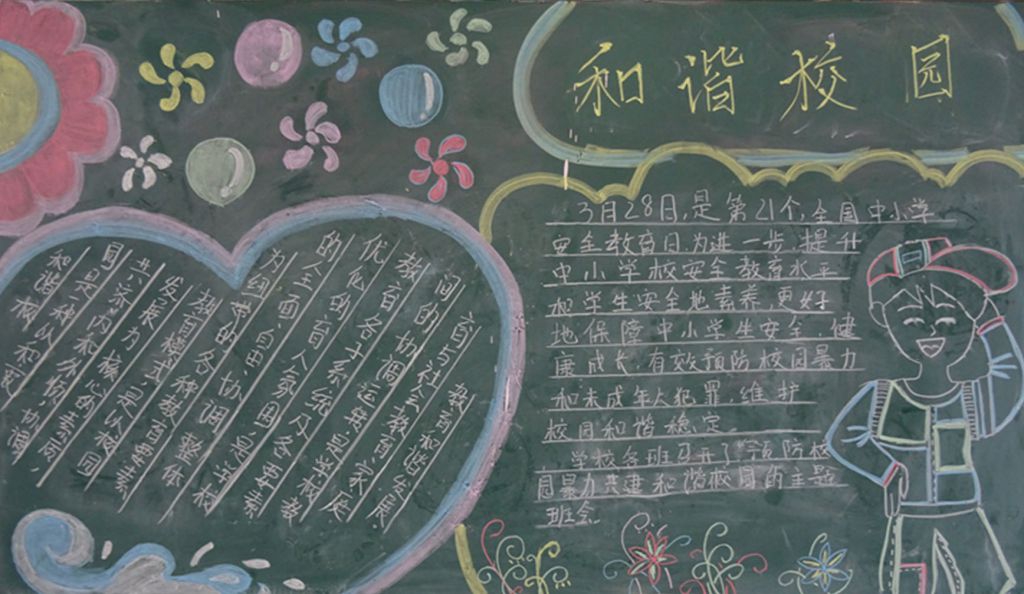 和谐校园
3月28日,是第21个,全国中小学
安全教育日,为进一步提升
中小学校安全教育水平
和学生安全地素养,更好
地保障中小学生安全、健
康成长,有效预防校园暴力
和未成年人犯罪,维护
校园和谐稳定。
学校各班召开了"预防校
园暴力共进和谐校园的主题
班会
和谐校
园是一种以和
共济、内和
发展为核心的素
教育模式,是以校园
为纽带的各种教育要素
的全面、自由、协调、整体
优化的育人氛围,是学校
教育各子系统及各要素
间的协调运转,是学校教
育与社会教育、家庭
教育和谐发展